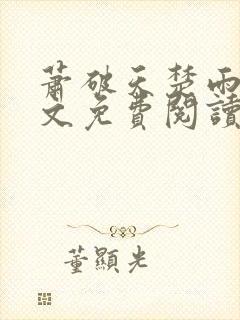 蕭破天楚雨
文免費閱讀
董顯光